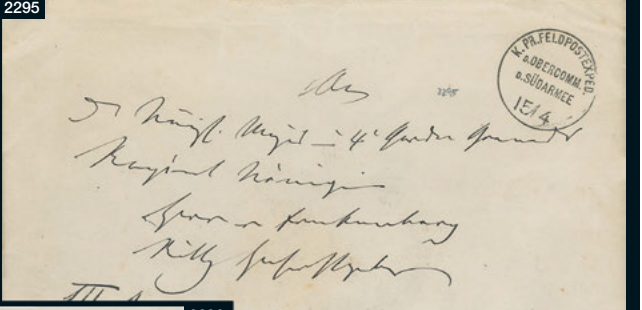 2295
K. PR. FELDPOSTEXPED.
d. OBERCOMM.
d. SÜDARMEE
15/4
An
2295
Königl. Major 4t Garde Grenadier
Regiment Königin
Herrn v Frankenberg
III